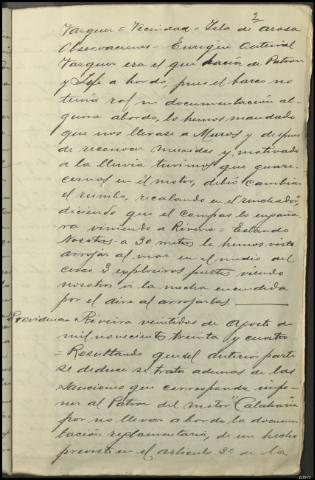 2
Vazquez = Vecindad = Isla de Arosa
Observaciones = Enrique Outeiral
Vazquez era el que hacia de Patron
y Jefe a bordo, pues el barco no
tenia rol ni documentación al-
guna abordo, lo hemos mandado
que nos llevase a Muros y despues
de recorrer millas y motivado
a la lluvia tuvimos que guare-
cernos en el motor, debió cambiar
el rumbo, recalando en el
diciendo que el compas lo engaña-
ra viniendo a Riveira = Estando
nosotros a 30 metros le hemos visto
arrojar al mar en el medio del
cerco 3 explosivos pues viendo
nosotros a la mecha encendida
por el aire al arrojarlos
Providencia = Riveira veintidos de Agosto de
mil novecientos treinta y cuatro
= Resultando que del anterior parte
se deduce se trata ademas de las
sanciones que corresponda impo-
ner al Patron del motor
por no llevar a bordo la docum-
tación reglamentaria, de un hecho
previsto en el articulo 3º de la